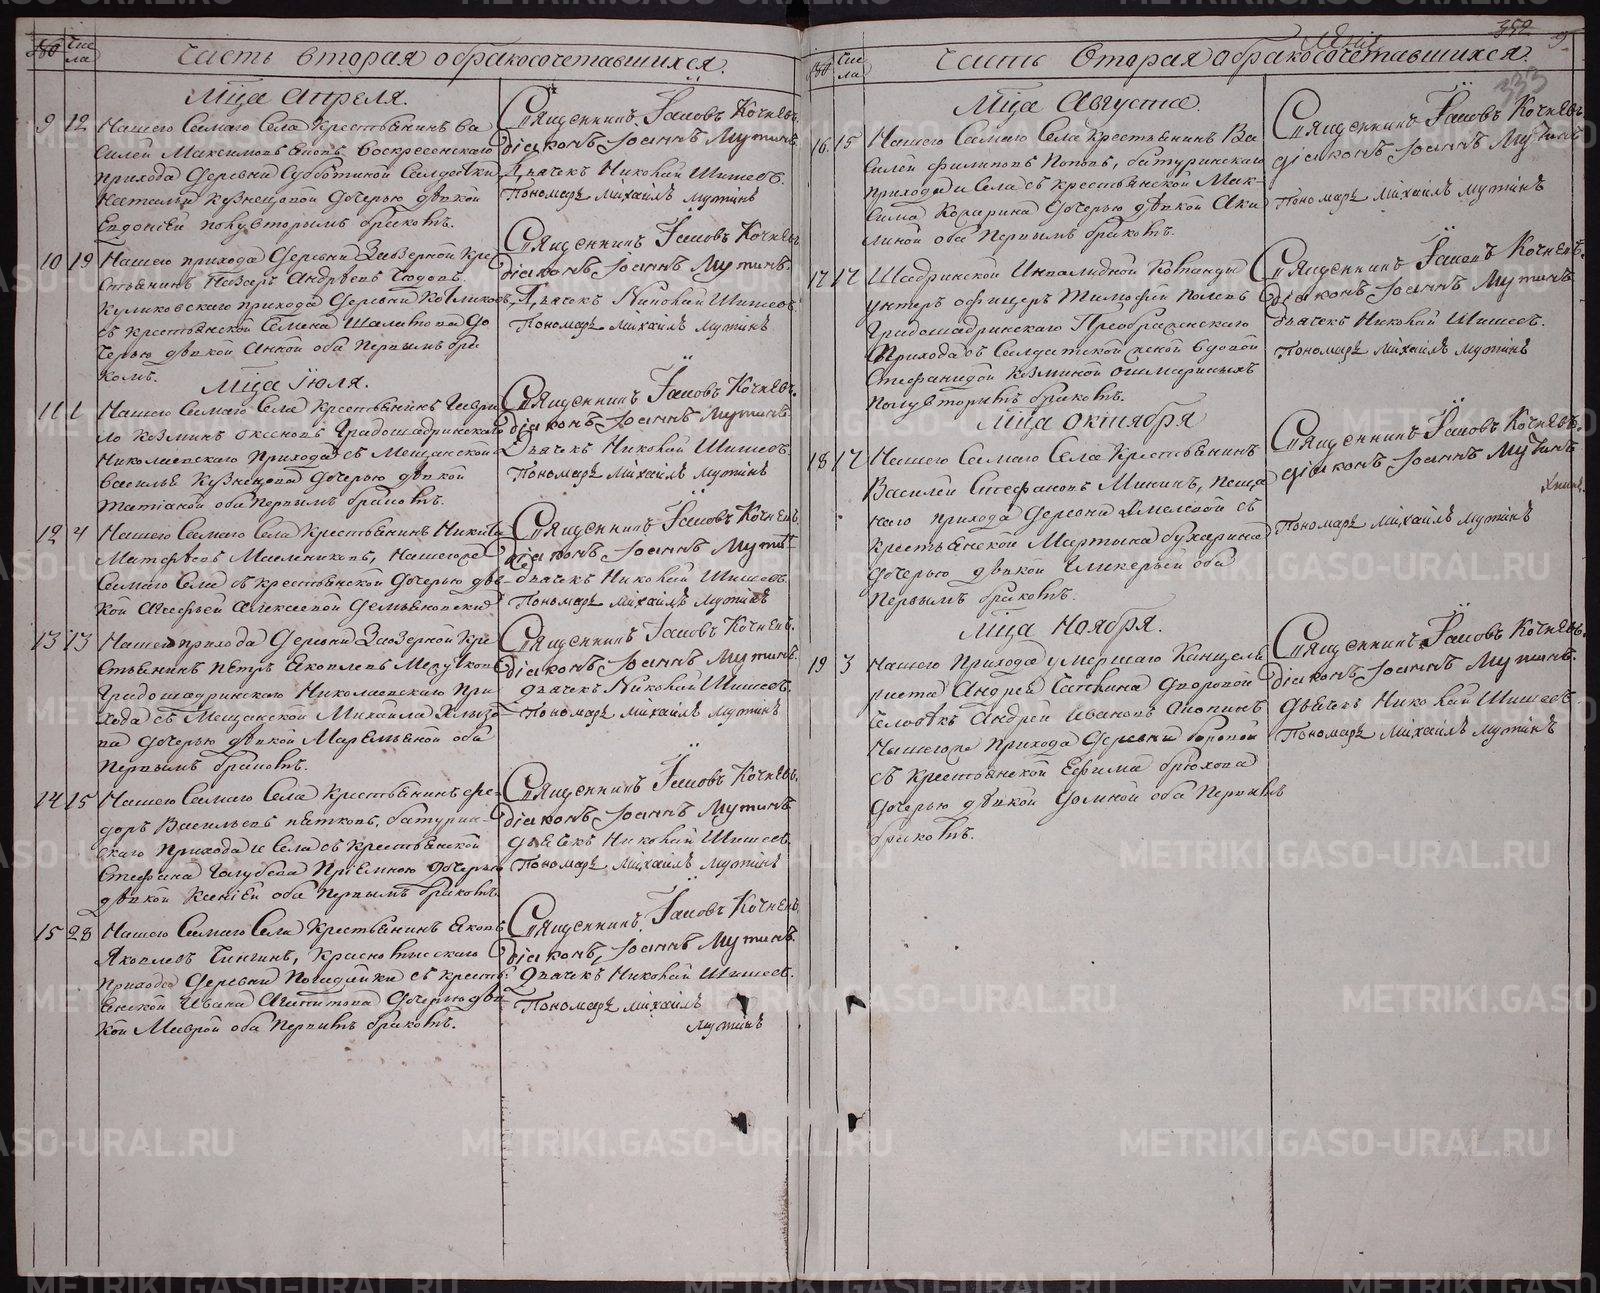 Числа
Часть вторая обракосочетавшихся.
Мца Апреля.
9 12 Нашего Самаго Села Крестьянинъ Ва
силей Максимовъ Воскресенскаго
прихода Деревни Субботиной Салдатки
Натальи Кузнецовой Дочерью дѣвкой
Евдокіей полувторымъ бракомъ.
Священникъ Іаковъ Кочневъ.
діаконъ Іоаннъ Мутинъ.
Дьячекъ Николай Шишевъ.
Пономарь Михаилъ Мутинъ
10 19 Нашего прихода Деревни Заозерной Кре
стьянинъ Назаръ Андреевъ
Куликовскаго прихода Деревни Котликовой
съ крестьянской Семена Шалатова до
черью дѣвкой Анной оба первымъ бра
комъ.
Священникъ Іаковъ Кочневъ
діаконъ Іоаннъ Мутинъ.
Дьячекъ Николай Шишевъ.
Пономарь Михаилъ Мутинъ
Мца Іюля.
11 1 Нашего Самаго Села Крестьянинъ Гаври
ло Козминъ Градошадринскаго
Николаевскаго Прихода съ Мещанской
Василья Кузнецова Дочерью дѣвкой
Татіаной оба первымъ бракомъ.
Священникъ Іаковъ Кочневъ.
діаконъ Іоаннъ Мутинъ.
Дьячекъ Николай Шишевъ.
Пономарь Михаилъ Мутинъ
12 4 Нашего Самаго Села Крестьянинъ Никита
Матфеевъ Масленниковъ, Нашегоже
Самаго Села съ крестьянской Дочерью дѣв
кой Агафьей Алексеевой
Священникъ Іаковъ Кочневъ
діаконъ Іоаннъ Мутинъ
дьячекъ Николай Шишевъ.
Пономарь Михаилъ Мутинъ
13 13 Нашего прихода Деревни Заозерной Кре
стьянинъ Петръ Яковлевъ
Градошадринскаго Николаевскаго При
хода съ Мещанской Михайла Хлызо
ва Дочерью дѣвкой Маремьяной оба
первымъ бракомъ.
Священникъ Іаковъ Кочневъ.
діаконъ Іоаннъ Мутинъ.
дьячекъ Николай Шишевъ.
Пономарь Михаилъ Мутинъ
14 15 Нашего Самаго Села Крестьянинъ Фе
доръ Васильевъ Пѣтковъ, батурин
скаго прихода и Села съ Крестьянской
Стефана Голубева Пріемною Дочерью
дѣвкой Ксеніей оба первымъ бракомъ
Священникъ Іаковъ Кочневъ.
діаконъ Іоаннъ Мутинъ.
дьячекъ Николай Шишевъ.
Пономарь Михаилъ Мутинъ
15 28 Нашего Самаго Села Крестьянинъ Яковъ
Яковлевъ Чингинъ, Красномысскаго
прихода Деревни Погадайки съ крестья
янской Ивана Агапитова Дочерью дѣв
кой Маврой оба первымъ бракомъ.
Священникъ Іаковъ Кочневъ
діаконъ, Іоаннъ Мутинъ.
Дьячекъ Николай Шишевъ.
Пономарь Михаилъ
Мутинъ
352
Числа
Часть Вторая обракосочетавшихся.
Мца Августа.
16 15 Нашего Самаго Села Крестьянинъ Ва
силей Филиповъ Поповъ, батуринскаго
прихода и Села съ крестьянской Мак
сима Кокарина Дочерью дѣвкой Аки
линой оба первымъ бракомъ.
Священникъ Іаковъ Кочневъ
діаконъ Іоаннъ Мутинъ
Пономарь Михаилъ Мутинъ
17 17 Шадринской Инвалидной Команды
унтеръ офицеръ Тимофей Поповъ
Градошадринскаго Преображенскаго
Прихода съ Салдатской женой вдовой
Стефанидой Козминой
полувторымъ бракомъ.
Священникъ Іаковъ Кочневъ.
діаконъ Іоаннъ Мутинъ
дьячекъ Николай Шишевъ.
Пономарь Михаилъ Мутинъ
Мца Октября
18 17 Нашего Самаго Села Крестьянинъ
Василей Стефановъ Мининъ,
прихода Деревни съ
Крестьянской Мартына бухарина
Дочерью дѣвкой Гликерьей оба
первымъ бракомъ.
Священникъ Іаковъ Кочневъ.
діаконъ Іоаннъ Мутинъ
Пономарь Михаилъ Мутинъ
Мца Ноября.
19 3 Нашего Прихода умершаго Канцеля
риста Андрея дворовой
человѣкъ Андрей Ивановъ
Нашегоже прихода Деревни боровой
съ крестьянской Ефима брюхова
Дочерью дѣвкой Домной оба первымъ
бракомъ.
Священникъ Іаковъ Кочневъ.
діаконъ Іоаннъ Мутинъ.
дьячекъ Николай Шишевъ.
Пономарь Михаилъ Мутинъ
METRIKI.GASO-URAL.RU